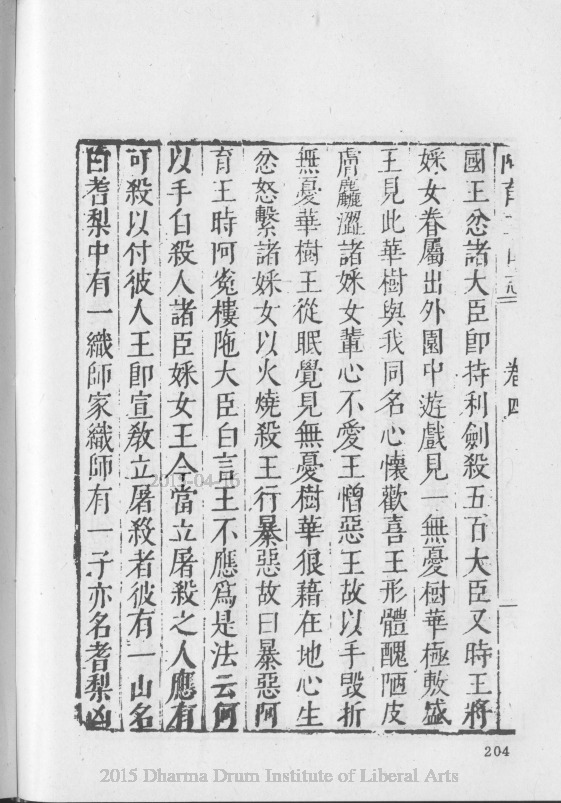 阿育王山志 卷四 一
國王忿諸大臣卽持利劍殺五百大臣又時王將
婇女眷屬出外園中遊戲見一無憂樹華極敷盛
王見此華樹與我同名心懷歡喜王形體醜陋皮
膚麤澀諸婇女輩心不愛王憎惡王故以手毀折
無憂華樹王從眠覺見無憂樹華狼藉在地心生
忿怒繫諸婇女以火燒殺王行暴惡故曰暴惡阿
育王時阿㝹樓陁大臣白言王不應爲是法云何
以手自殺人諸臣婇女王今當立屠殺之人應有
可殺以付彼人王卽宣敎立屠殺者彼有一山名
曰耆梨中有一織師家織師有一子亦名耆梨凶
204
2015-04-16
2015 Dharma Drum Institute of Liberal Arts